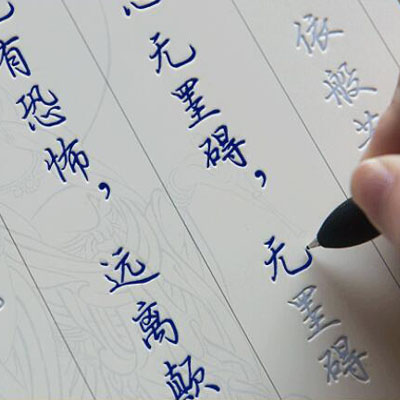 依般
心无罣碍,无罣碍
有恐怖,远离颠